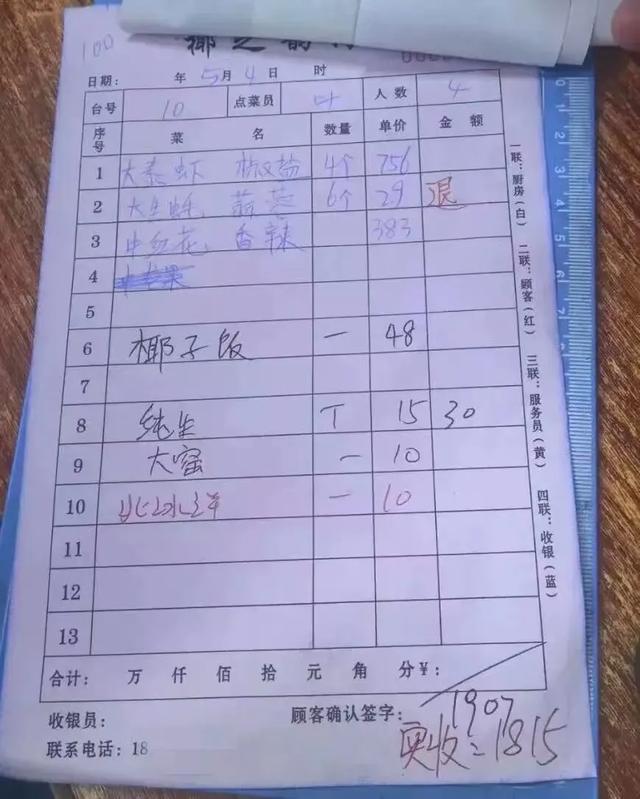 100
椰之韵
日期: 年 5月 4日 时
台号 10 点菜员 叶 人数 4
序号 菜 名 数量 单价 金额
1 大泰虾 椒盐 4个 756
2 大生蚝 蒜蓉 6个 29 退
3 中红花 香辣 383
4
5
6 椰子饭 一 48
7
8 纯生 T 15 30
9 大窑 一 10
10 北冰洋 一 10
11
12
13
合计: 万 仟 佰 拾 元 角 分¥:
收银员: 顾客确认签字:
1907
联系电话: 18
实收=1815
一联:厨房(白) 二联:顾客(红) 三联:服务员(黄) 四联:收银(蓝)
0
1
2
3
4
5
6
7
8